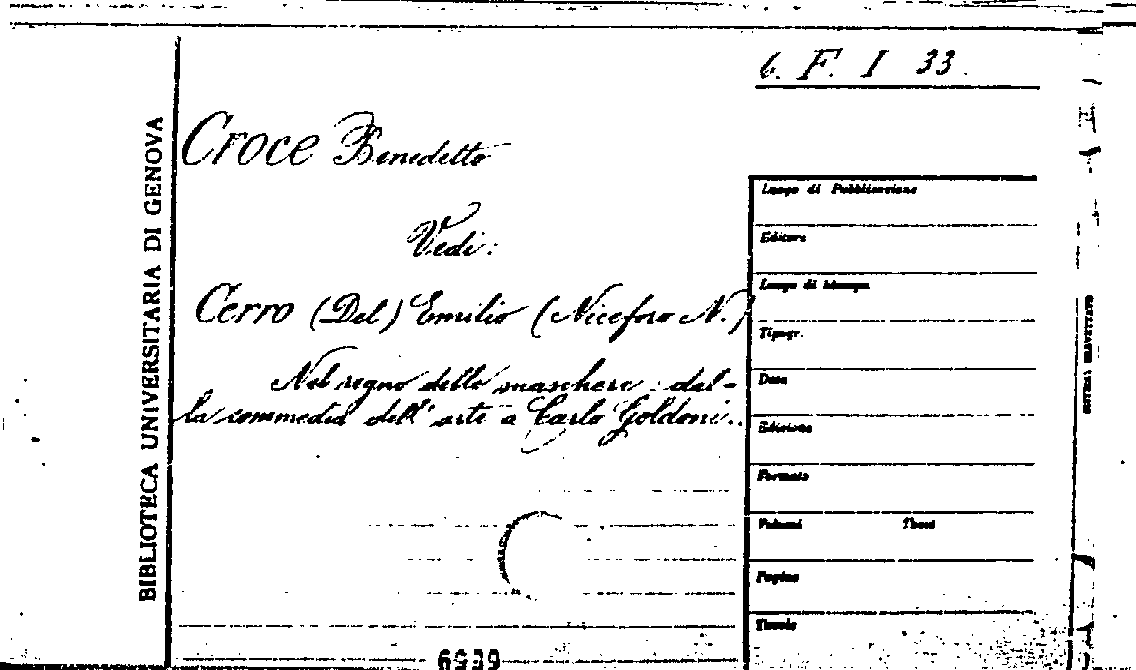 6. F. I 33.
BIBLIOTECA UNIVERSITARIA DI GENOVA
Croce Benedetto
Vedi:
Cerro (Del) Emilio (Niceforo N.)
Nel regno delle maschere dal-
la commedia dell'arte a Carlo Goldoni..
Luogo di Pubblicazione
Editore
Luogo di stampa
Tipogr.
Data
Edizione
Formato
Volumi Tomi
Pagine
Tavole